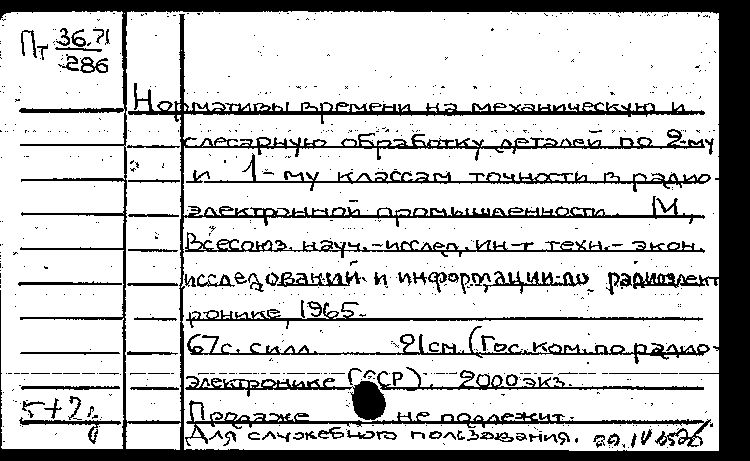 Пт 36.71
286
Нормативы времени на механическую и
слесарную обработку деталей по 2-му
и 1-му классам точности в радио-
электронной промышленности. М.,
Всесоюз. науч.-исслед. ин-т техн.- экон.
исследований и информации по радиоэлект
ронике, 1965.
67с. с илл. 21см. (Гос. ком. по радио-
электронике СССР). 2000 экз.
5+2д
Продаже не подлежит.
Для служебного пользования.